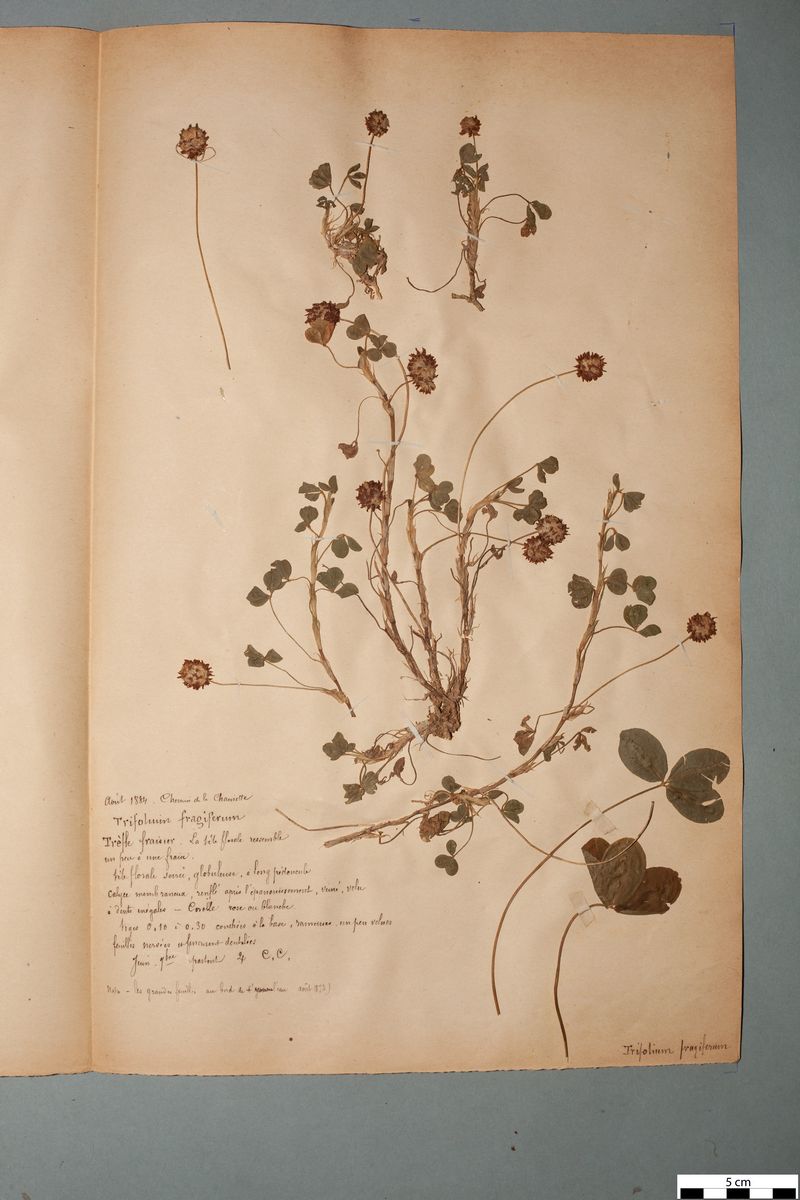 Août 1884. Chemin de la
Trifolium fragiferum
Trèfle fraisier. La tête florale ressemble
un peu à une fraise.
tête florale serrée, globuleuse, à long pédoncule
calyce membraneux, renflé après l'épanouissement, veiné, velu
à dents inégales – Corolle rose ou blanche
tiges 0,10 à 0,30 couchées à la base, rameuses, un peu velues
feuilles nervées et finement dentelées
Juin. 9bre partout ♃ C.C.
Nota – les grandes feuilles au bord de août
Trifolium fragiferum
5 cm